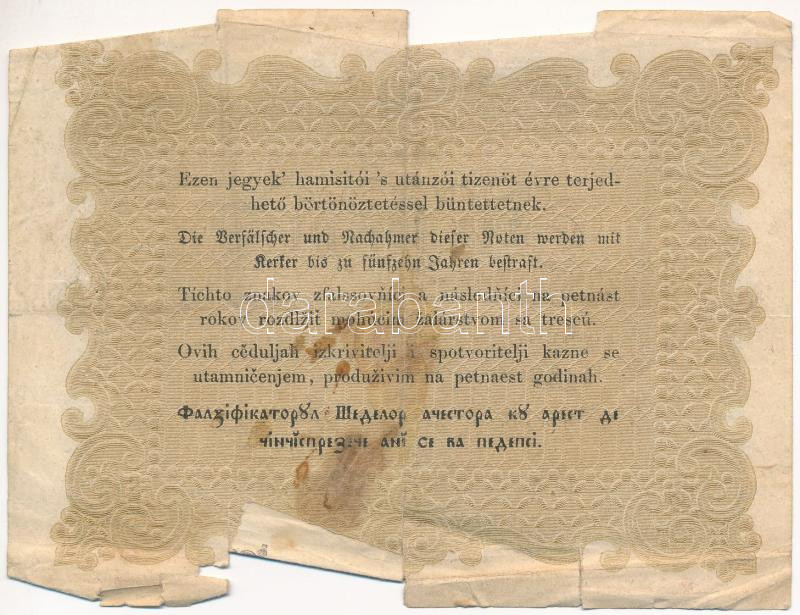 Ezen jegyek' hamisitói 's utánzói tizenöt évre terjed-
hető börtönöztetéssel büntettetnek.
Die Verfälscher und Nachahmer dieser Noten werden mit
Kerker bis zu fünfzehn Jahren bestraft.
Tíchto znakov zfalszovňíci a násladňíci na petnást
rokov rozdlžiť mohúcim žalárstvom sa trescú.
darabanth
Ovih cěduljah izkrivitelji i spotvoritelji kazne se
utamničenjem, produživim na petnaest godinah.
Фалзіфікаторꙋл Шеделор ачестора кꙋ арест де
чінчĭспрезече анĭ се ва педепсі.